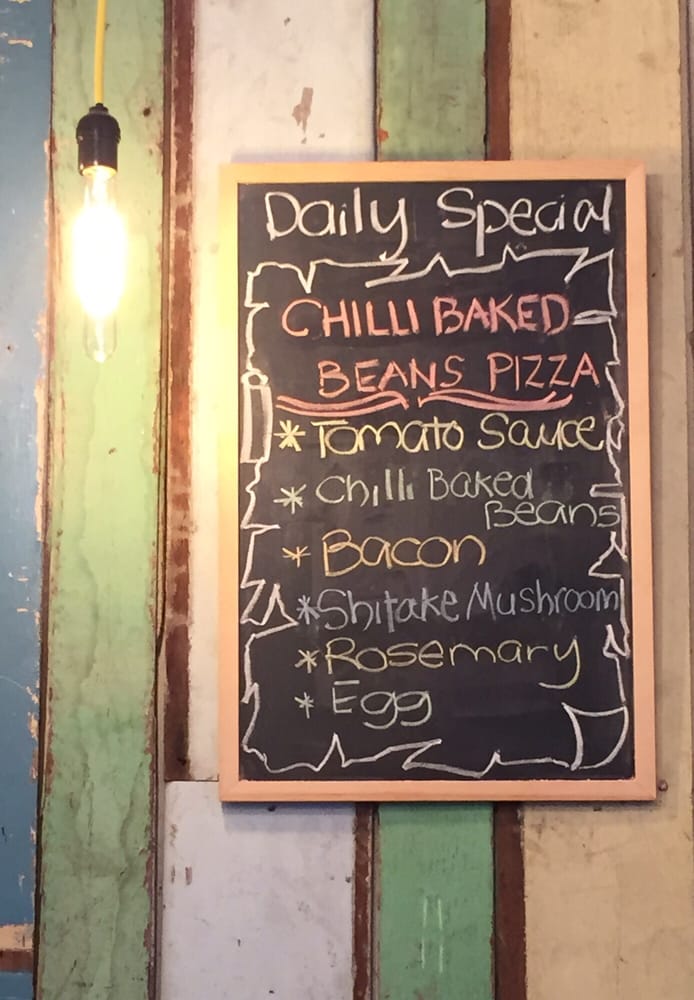 Daily Special
CHILLI BAKED
BEANS PIZZA
* Tomato Sauce
* Chilli Baked
Beans
* Bacon
* Shitake Mushroom
* Rosemary
* Egg